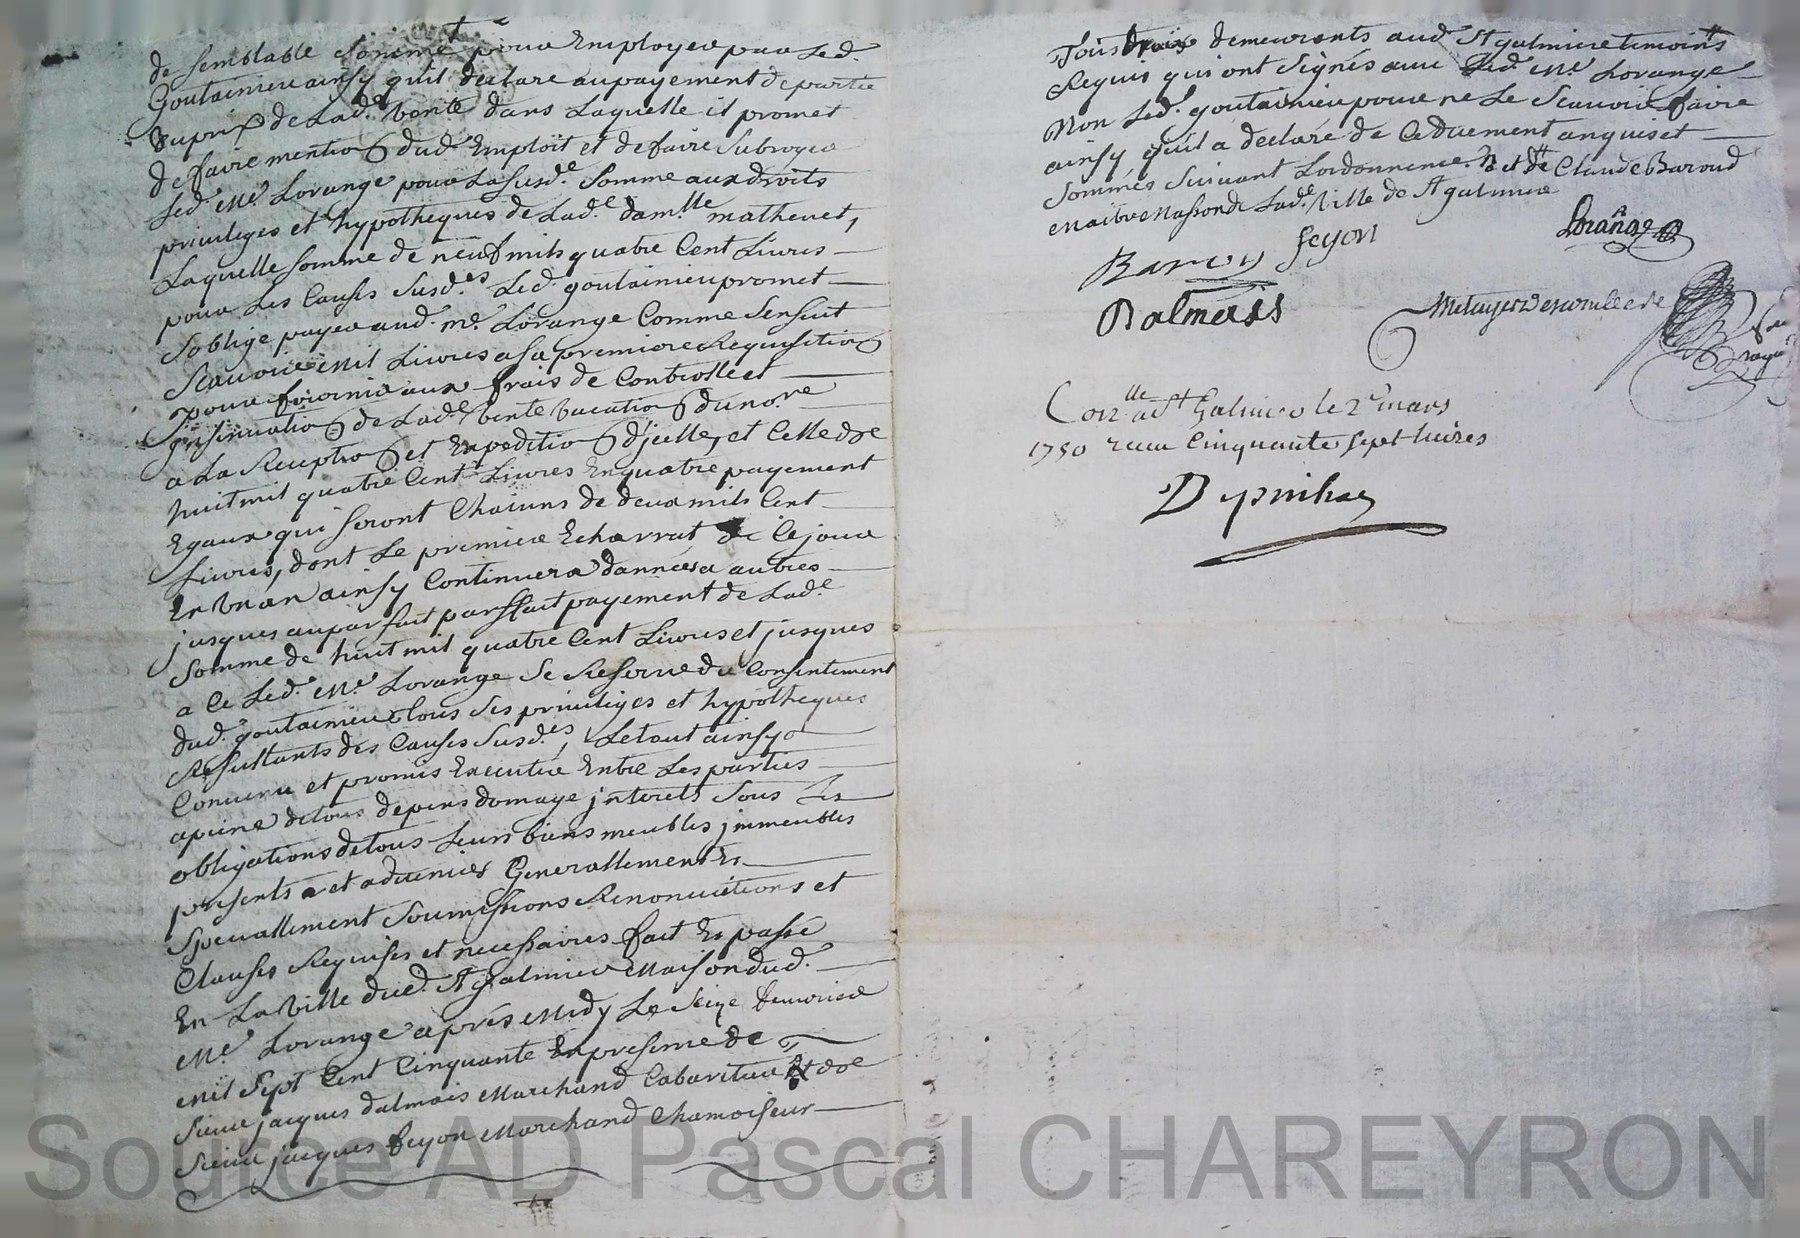 de semblable somme pour Employer par Led.
Goutainieu ainsy qu'il declare au payement de partie
du prix de Lad.e vente dans Laquelle il promet
de faire mention dud. Emploit et de faire subroger
Led. Me. Lorange pour La susd.e somme aux droits
privileges et hypotheques de Lad.e dam.lle mathevet,
Laquelle somme de neuf mils quatre Cent Livres
pour Les Causes susd.es Led. goutainieu promet
s'oblige payer aud. me. Lorange Comme s'ensuit
scavoir mil Livres a sa premiere Requisition
pour fournir aux frais de Controlle et
insinuation de Lad.e vente vacation du no.re
a La Reception et Expedition d'jcelle, et Celle de
huit mil quatre Cent Livres En quatre payement
Egaux qui seront Chaiuns de deux mils Cent
Livres, dont Le premier Echerrat de Ce jour
En un an ainsy Continuera d'années a autres
jusques au parfait parffait payement de Lad.e
somme de huit mil quatre Cent Livres et jusques
a Ce Led. Me. Lorange se Reserve du Consentement
dud. goutainieu tous ses privileges et hypotheques
Resultants des Causes susd.es, Le tout ainsy
Convenu et promis Executer Entre Les parties
a peine de tous depens domage jnterets sous Les
obligations de tous Leurs biens meubles jmmeubles
presents et advenirs Generallement Et
speciallement soumissions Renonciations et
Clauses Requises et necessaires fait Et passé
En La ville dud. St galmier Maison dud.
Me. Lorange apres Midy Le seize fevrier
mil sept Cent Cinquante En presence de
sieur jacques dalmais Marchand Cabaretier Et de
sieur jacques feyon Marchand Chamoiseur
Tous deux demeurants aud. St galmier temoins
Requis qui ont signés avec Led. Me. Lorange
Non Led. goutainieu pour ne Le scavoir faire
ainsy qu'il a declaré de Ce duement anquis et
sommés suivant Lordonnence. Et de Claude Baroud
Maitre Masson de Lad.e ville de St galmier
Barou feyon Lorange
Dalmais
Con.lle a St Galmier le 2e mars
1750 recu Cinquante sept livres
Source AD Pascal CHAREYRON